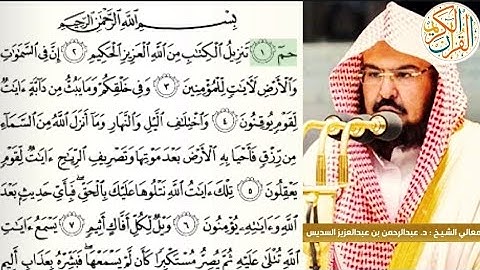 بِسْمِ اللَّهِ الرَّحْمَٰنِ الرَّحِيمِ
حمٓ ١ تَنزِيلُ الْكِتَابِ مِنَ اللَّهِ الْعَزِيزِ الْحَكِيمِ ٢ إِنَّ فِي السَّمَاوَاتِ
وَالْأَرْضِ لَآيَاتٍ لِّلْمُؤْمِنِينَ ٣ وَفِي خَلْقِكُمْ وَمَا يَبُثُّ مِن دَابَّةٍ آيَاتٌ
لِّقَوْمٍ يُوقِنُونَ ٤ وَاخْتِلَافِ اللَّيْلِ وَالنَّهَارِ وَمَا أَنزَلَ اللَّهُ مِنَ السَّمَاءِ
مِن رِّزْقٍ فَأَحْيَا بِهِ الْأَرْضَ بَعْدَ مَوْتِهَا وَتَصْرِيفِ الرِّيَاحِ آيَاتٌ لِّقَوْمٍ
يَعْقِلُونَ ٥ تِلْكَ آيَاتُ اللَّهِ نَتْلُوهَا عَلَيْكَ بِالْحَقِّ فَبِأَيِّ حَدِيثٍ بَعْدَ
اللَّهِ وَآيَاتِهِ يُؤْمِنُونَ ٦ وَيْلٌ لِّكُلِّ أَفَّاكٍ أَثِيمٍ ٧ يَسْمَعُ آيَاتِ
اللَّهِ تُتْلَىٰ عَلَيْهِ ثُمَّ يُصِرُّ مُسْتَكْبِرًا كَأَن لَّمْ يَسْمَعْهَا فَبَشِّرْهُ بِعَذَابٍ أَلِيمٍ
القرآن الكريم
معالي الشيخ : د. عبدالرحمن بن عبدالعزيز السديس